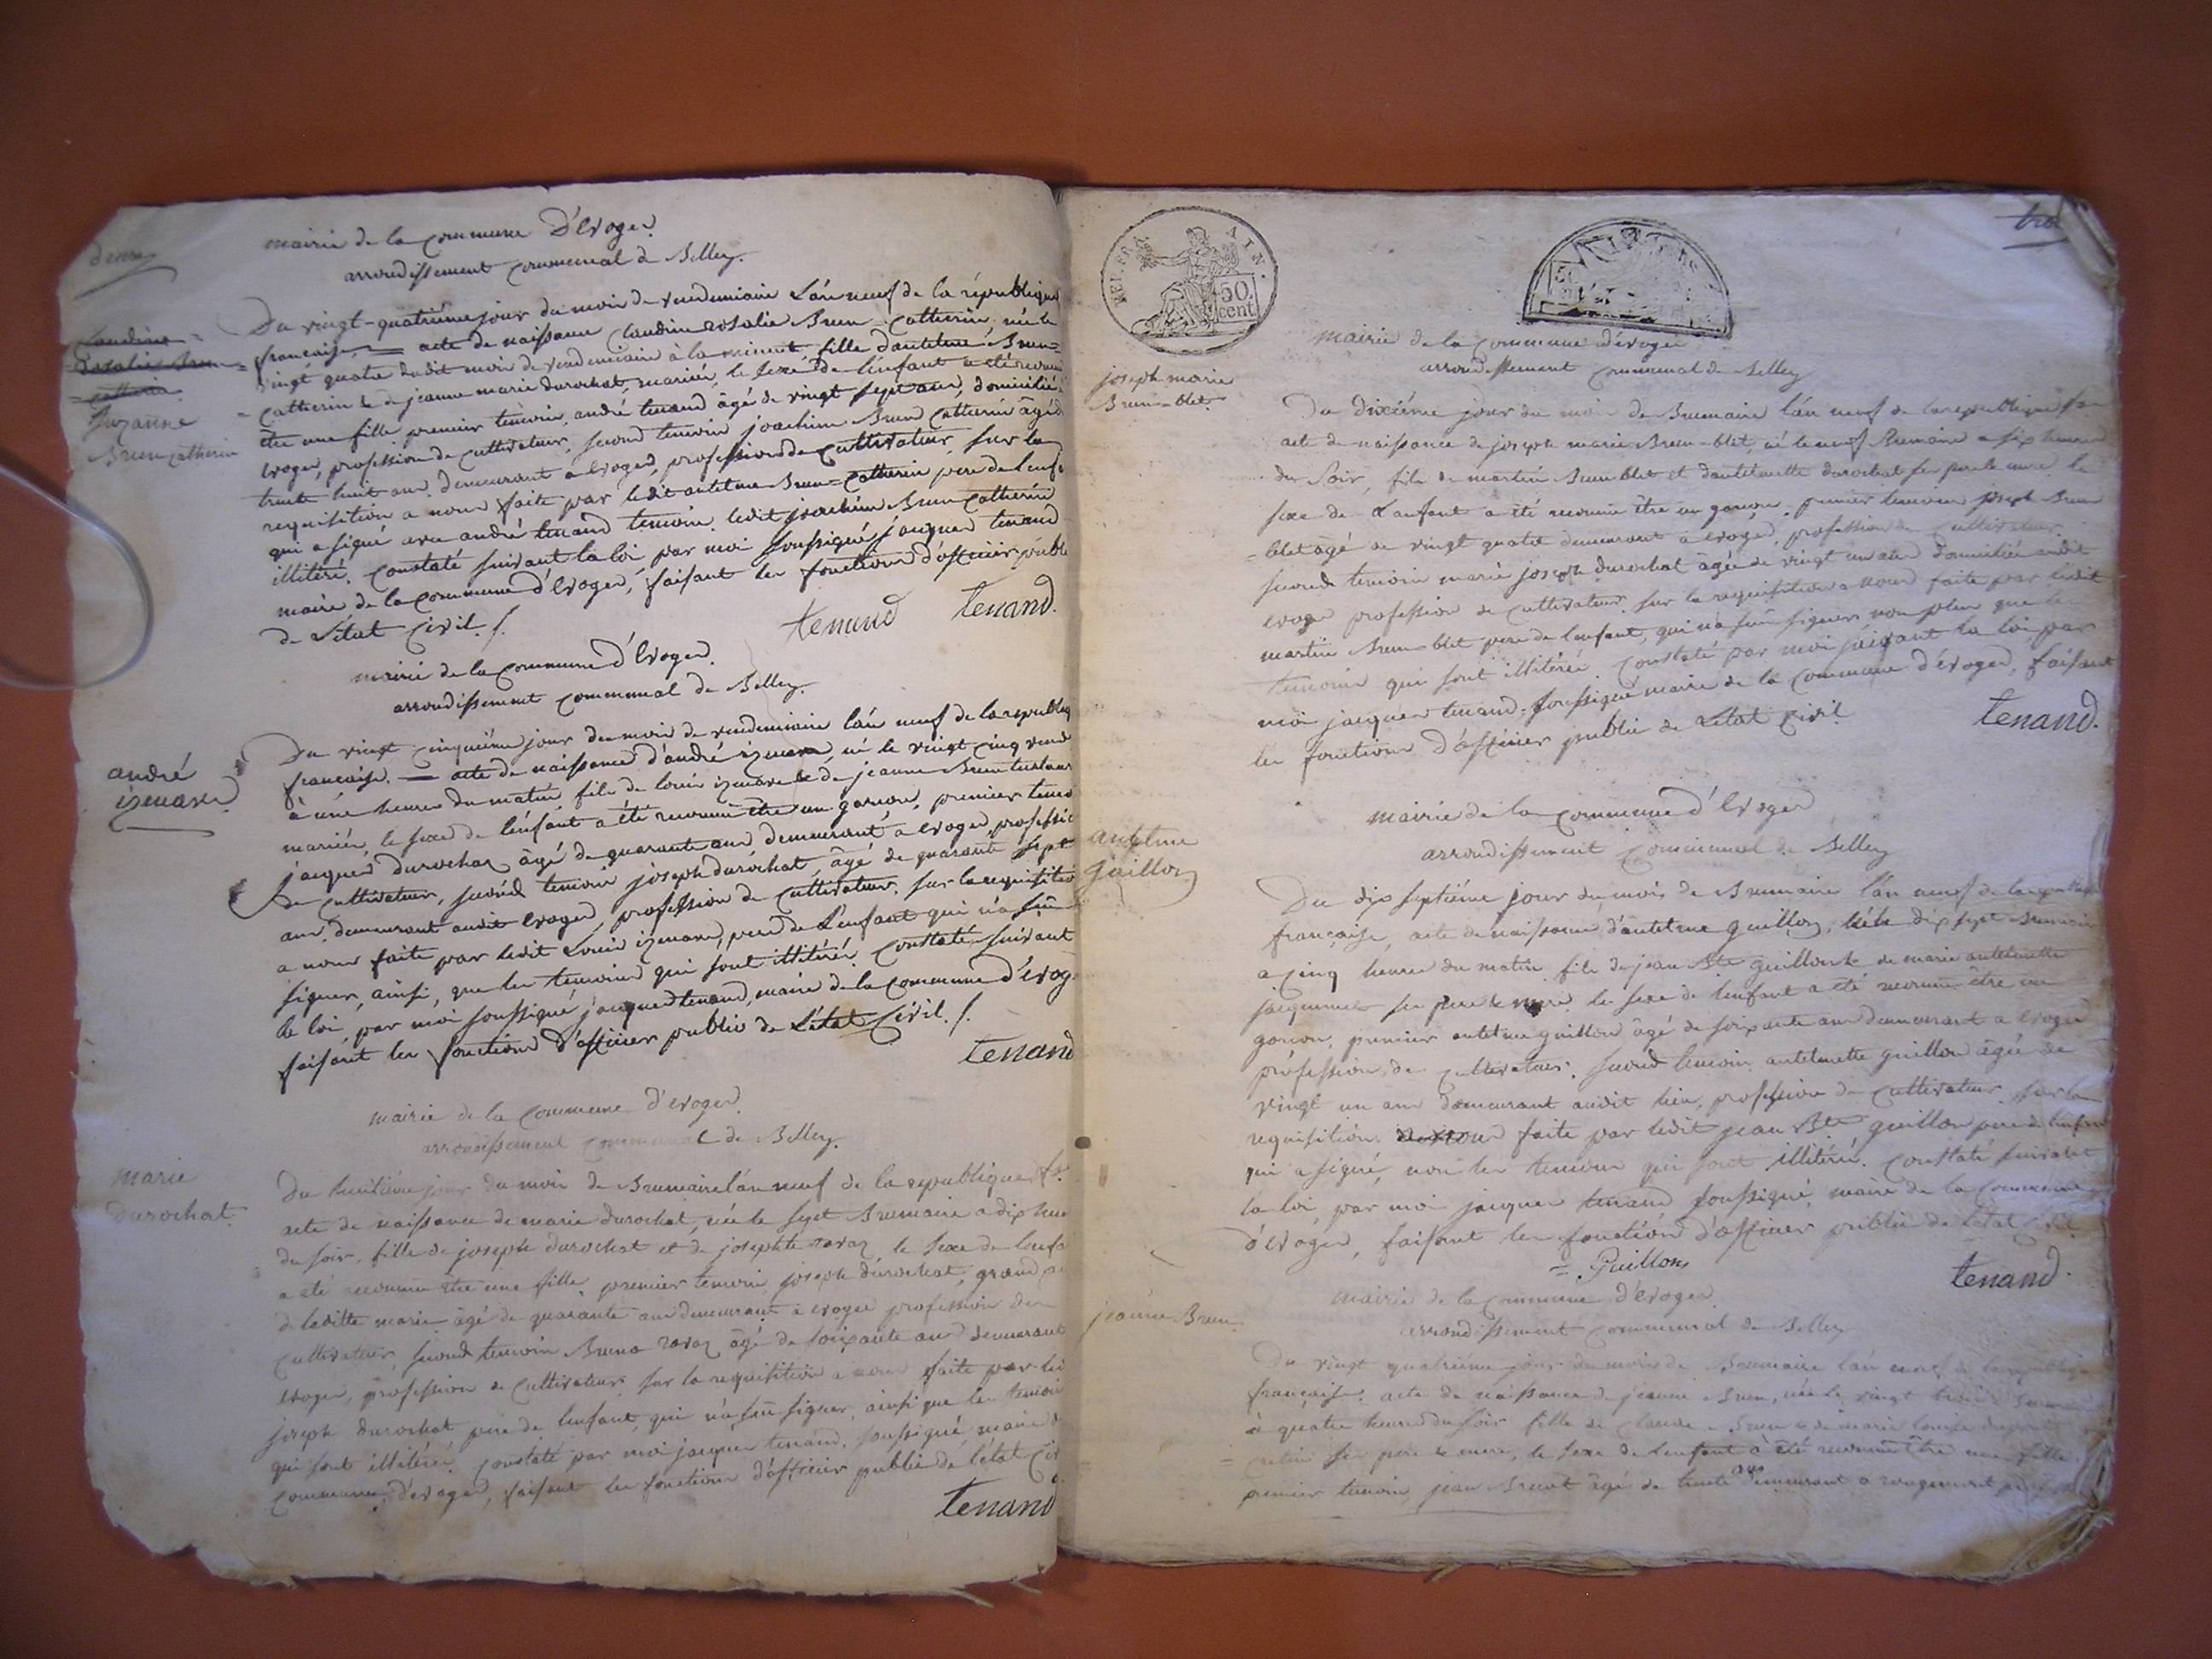 deux
mairie de la commune D'Evoges
arrondissement communal de Belley.
Claudine =
Rosalie Brun =
catherin
Suzanne
Brun catherin
Du vingt-quatrième jour du mois de vendemiaire L'an neuf de la république
française. acte de naissance Claudine rosalie Brun = Catherin née le
vingt quatre dudit mois de vendemiaire à la minuit fille d'antelme Brun =
= Catherin & de jeanne marie durochat, mariés, le sexe de l'enfant a été reconnu
être une fille premier temoin, andré tenand âgé de vingt sept ans, domicilié à
Evoges, profession de cultivateur, second temoin joachim Brun Catherin âgé de
trente huit ans demeurant a Evoges, profession de cultivateur, sur la
requisition a nous faite par ledit antelme Brun = Catherin pere de l'enfa
qui a signé avec andré tenand temoin. ledit joachim Brun Catherin
illitéré. Constaté suivant la loi par moi soussigné jacques tenand
maire de la commune d'Evoges, faisant les fonctions d'officier publ
de L'état Civil. /.
tenand tenand.
mairie de la commune d'Evoges.
arrondissement communal de Belley.
andré
izenard
Du vingt cinquième jour du mois de vendemiaire l'an neuf de la republiq
française. acte de naissance d'andré izenard, né le vingt cinq vend
à une heure du matin fils de louis izenard & de jeanne Brun
mariés, le sexe de l'enfant a été reconnu être un garçon, premier temo
jacques durochat âgé de quarante ans demeurant a Evoges, professio
de cultivateur, second temoin joseph durochat, âgé de quarante sept
ans. demeurant audit Evoges, profession de cultivateur. sur la requisitio
a nous faite par ledit Louis izenard, pere de l'enfant qui n'a sçû
signer, ainsi, que les temoins qui sont illitérés. Constaté suivant
la loi, par moi soussigné jacques tenand, maire de la commune d'Evoge
faisant les fonctions d'officier public de L'état Civil. /.
tenand
mairie de la commune d'evoges.
arrondissement communal de Belley.
marie
durochat.
Du huitième jour du mois de Brumaire l'an neuf de la republique fse
acte de naissance de marie durochat, née le sept Brumaire a dix heu
du soir, fille de joseph durochat et de josephte ravaz le sexe de l'enfa
a été reconnu être une fille, premier temoin, joseph durochat, grand pe
de laditte marie âgé de quarante ans demeurant à evoges profession de
cultivateur, second temoin Bruno ravaz âgé de soixante ans demeurant
Evoges, profession de cultivateur, sur la requisition a nous faite par le
joseph durochat pere de l'enfant, qui n'a sçû signer, ainsi que les temoin
qui sont illitérés. Constaté par moi jacques tenand, soussigné, maire d
commune d'evoges, faisant les fonctions d'officier public de l'état Civ
tenand
REP. FRA. AIN.
50
cent.
joseph marie
Brun = blet.
mairie de la commune d'evoges
arrondissement communal de Belley
Du dixième jour du mois de Brumaire l'an neuf de la republique fse
acte de naissance de joseph marie Brun-blet, né le neuf Brumaire a six heures
du soir, fils de martin Brun blet et d'antelmette durochat ses pere & mere le
sexe de L'enfant a été reconnu être un garçon. premier temoin joseph Brun
= blet âgé de vingt quatre demeurant a evoges, profession de cultivateur.
second temoin marie joseph durochat âgée de vingt un ans domiciliée audit
evoges profession de cultivateur. sur la requisition a nous faite par ledit
martin Brun-blet pere de l'enfant, qui n'a sçû signer non plus que les
temoins qui sont illitérés. Constaté par moi suivant la loi par
moi jacques tenand, soussigné maire de la commune d'évoges, faisant
les fonctions d'officier public de L'état Civil
tenand.
mairie de la commune d'Evoges
arrondissement communal de Belley
antelme
guillon
Du dix septième jour du mois de Brumaire l'an neuf de la republique
française, acte de naissance d'antelme guillon, né le dix sept Brumaire
a cinq heures du matin fils de jean Bte guillon & de marie antelmette
jacquemet ses pere & mere le sexe de l'enfant a été reconnu être un
garçon, premier antelme guillon âgé de soixante ans demeurant a Evoges
profession, de cultivateur. second temoin antelmette guillon âgée de
vingt un ans demeurant audit lieu, profession de cultivateur. sur la
requisition. a nous faite par ledit jean Bte guillon pere de l'enfant
qui a signé, non les temoins qui sont illitérés. Constaté suivant
la loi, par moi jacques tenand soussigné, maire de la commune
d'evoges, faisant les fonctions d'officier public de l'état Civil
= Guillon tenand.
mairie de la commune d'evoges.
arrondissement communal de Belley
jeanne Brun.
Du vingt quatrième jour du mois de Brumaire l'an neuf de la republique
française. acte de naissance de jeanne Brun, née le vingt trois
à quatre heures du soir fille de Claude Brun & de marie louise
ses pere & mere, le sexe de l'enfant a été reconnu être une fille.
premier temoin, jean Brunet âgé de trente ans demeurant a rougemont